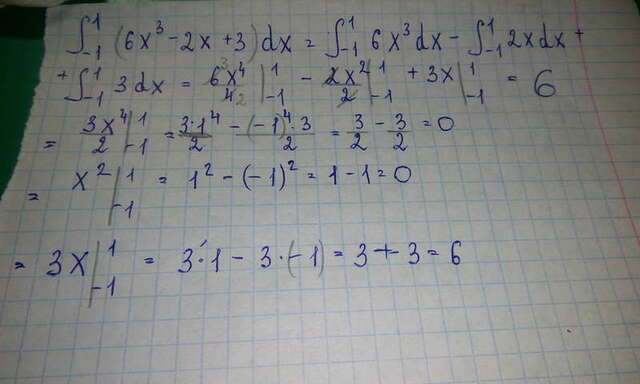 ∫₋₁¹ (6x³ - 2x + 3) dx = ∫₋₁¹ 6x³ dx - ∫₋₁¹ 2x dx +
+ ∫₋₁¹ 3 dx = 6³x⁴/4₂ |₋₁¹ - 2x²/2 |₋₁¹ + 3x |₋₁¹ = 6
= 3x⁴/2 |₋₁¹ = 3·1⁴/2 - (-1)⁴·3/2 = 3/2 - 3/2 = 0
= x² |₋₁¹ = 1² - (-1)² = 1 - 1 = 0
= 3x |₋₁¹ = 3·1 - 3·(-1) = 3 + 3 = 6